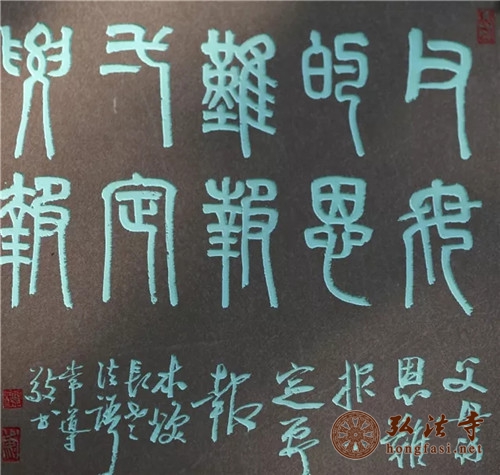 父母
的恩
難報
弌定
要報
父母
恩難
报
定要
報
本煥
長老
法語
敬书
弘法寺
hongfasi.net